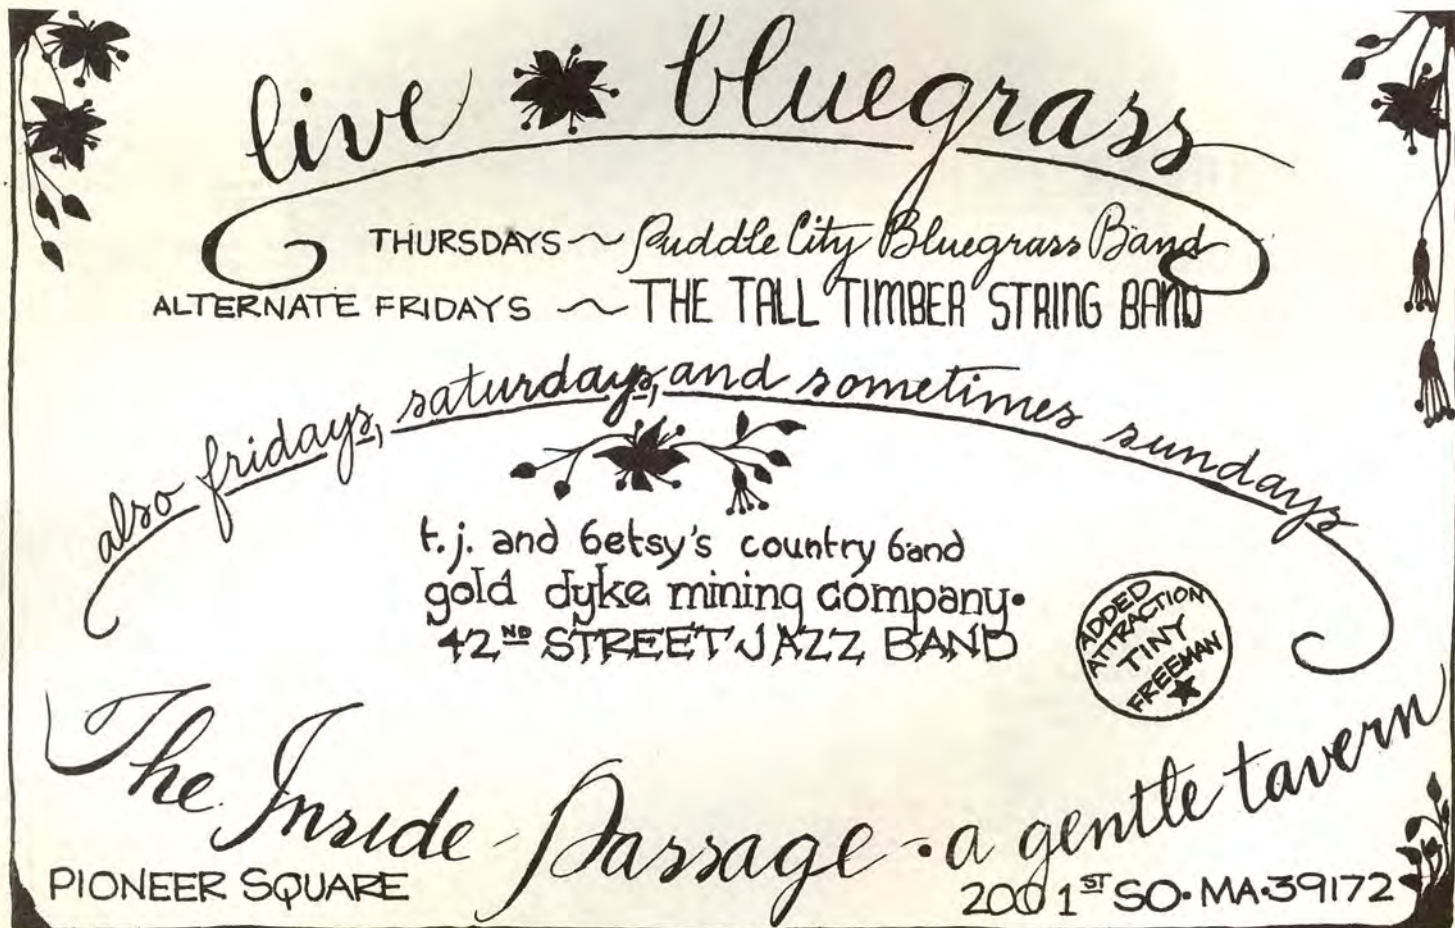 live bluegrass
THURSDAYS ~ Puddle City Bluegrass Band
ALTERNATE FRIDAYS ~ THE TALL TIMBER STRING BAND
also fridays, saturdays, and sometimes sundays
t.j. and betsy's country band
gold dyke mining company •
42ND STREET JAZZ BAND
ADDED
ATTRACTION
TINY
FREEMAN
The Inside Passage • a gentle tavern
PIONEER SQUARE
200 1ST SO • MA • 39172